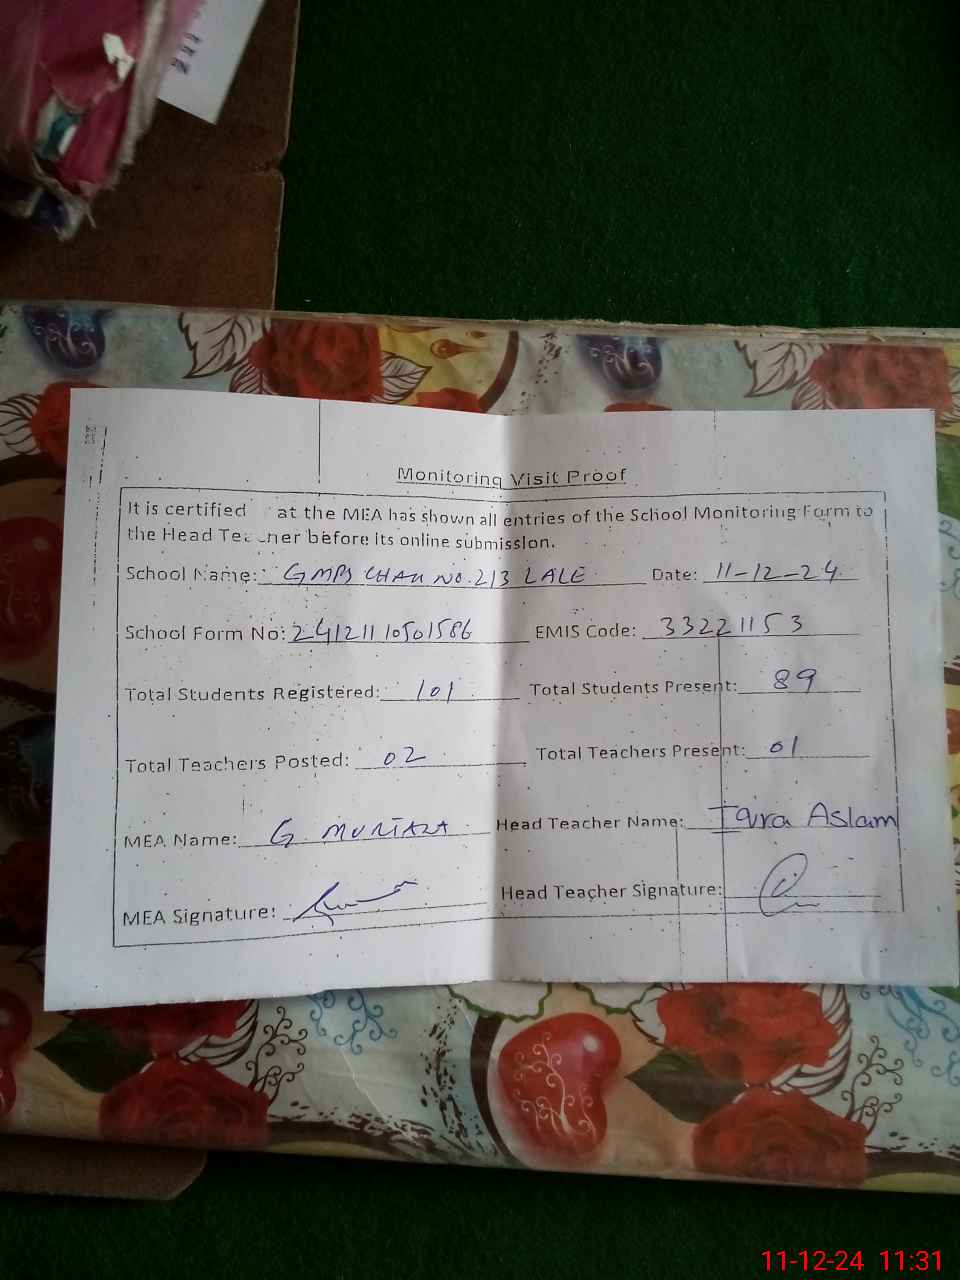 Monitoring Visit Proof
It is certified at the MEA has shown all entries of the School Monitoring Form to
the Head Teacher before its online submission.
School Name: GMPS CHAK NO. 213 LALE Date: 11-12-24
School Form No: 24121110501586 EMIS Code: 33221153
Total Students Registered: 101 Total Students Present: 89
Total Teachers Posted: 02 Total Teachers Present: 01
MEA Name: G. MURTAZA Head Teacher Name: Iqra Aslam
MEA Signature: Head Teacher Signature:
11-12-24 11:31